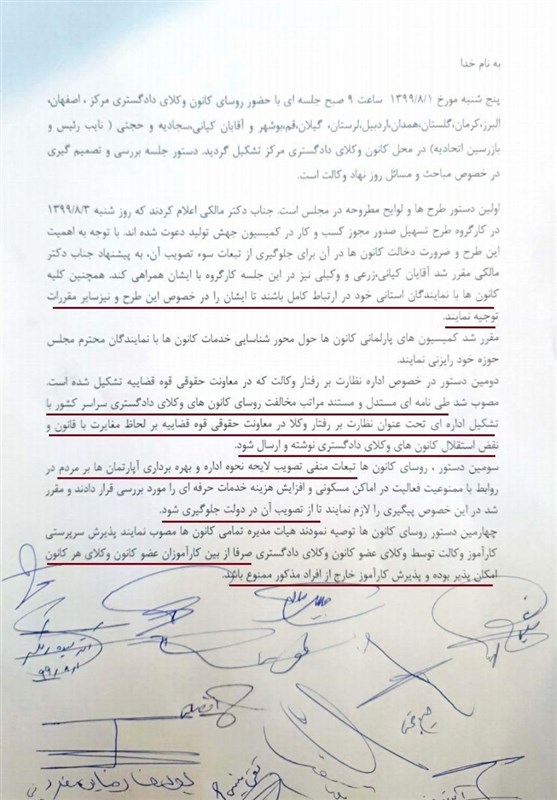 به نام خدا
پنج شنبه مورخ ۱۳۹۹/۸/۱ ساعت ۹ صبح جلسه ای با حضور روسای کانون وکلای دادگستری مرکز ، اصفهان،
البرز،کرمان،گلستان،همدان،اردبیل،لرستان، گیلان،قم،بوشهر و آقایان کیانی،سجادیه و حجتی ( نایب رئیس و
بازرسین اتحادیه) در محل کانون وکلای دادگستری مرکز تشکیل گردید. دستور جلسه بررسی و تصمیم گیری
در خصوص مباحث و مسائل روز نهاد وکالت است.
اولین دستور طرح ها و لوایح مطروحه در مجلس است. جناب دکتر مالکی اعلام کردند که روز شنبه ۱۳۹۹/۸/۳
در کارگروه طرح تسهیل صدور مجوز کسب و کار در کمیسیون جهش تولید دعوت شده اند. با توجه به اهمیت
این طرح و ضرورت دخالت کانون ها در آن برای جلوگیری از تبعات سوء تصویب آن، به پیشنهاد جناب دکتر
مالکی مقرر شد آقایان کیانی،زرعی و وکیلی نیز در این جلسه کارگروه با ایشان همراهی کند. همچنین کلیه
کانون ها با نمایندگان استانی خود در ارتباط کامل باشند تا ایشان را در خصوص این طرح و نیزسایر مقررات
توجیه نمایند.
مقرر شد کمیسیون های پارلمانی کانون ها حول محور شناسایی خدمات کانون ها با نمایندگان محترم مجلس
حوزه خود رایزنی نمایند.
دومین دستور در خصوص اداره نظارت بر رفتار وکالت که در معاونت حقوقی قوه قضاییه تشکیل شده است.
مصوب شد طی نامه ای مستدل و مستند مراتب مخالفت روسای کانون های وکلای دادگستری سراسر کشور با
تشکیل اداره ای تحت عنوان نظارت بر رفتار وکلا در معاونت حقوقی قوه قضاییه بر لحاظ مغایرت با قانون و
نقض استقلال کانون های وکلای دادگستری نوشته و ارسال شود.
سومین دستور ، روسای کانون ها تبعات منفی تصویب لایحه نحوه اداره و بهره برداری آپارتمان ها بر مردم در
روابط با ممنوعیت فعالیت در اماکن مسکونی و افزایش هزینه خدمات حرفه ای را مورد بررسی قرار دادند و مقرر
شد در این خصوص پیگیری را لازم نمایند تا از تصویب آن در دولت جلوگیری شود.
چهارمین دستور روسای کانون ها توصیه نمودند هیات مدیره تمامی کانون ها مصوب نمایند پذیرش سرپرستی
کارآموز وکالت توسط وکلای عضو کانون وکلای دادگستری صرفا از بین کارآموزان عضو کانون وکلای هر کانون
امکان پذیر بوده و پذیرش کارآموز خارج از افراد مذکور ممنوع باشد.